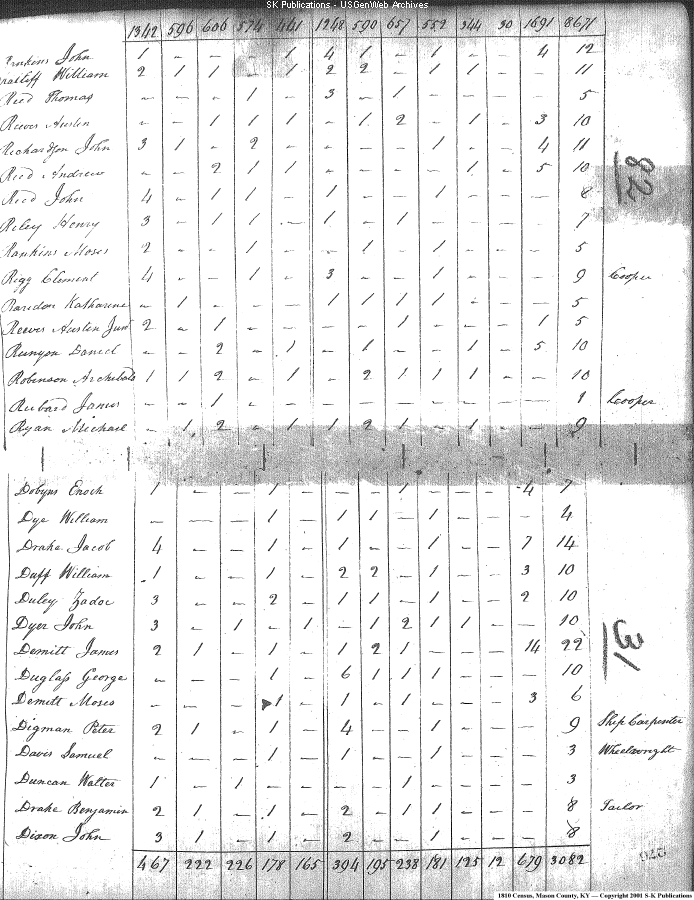 SK Publications - USGenWeb Archives
1342 596 606 574 441 1248 590 657 552 344 30 1691 8671
Jenkins John 1 - - 1 4 1 - 1 - - 4 12
Ratliff William 2 1 1 - 1 2 2 - 1 1 - - 11
Reed Thomas - - - 1 - 3 - 1 - - - - 5
Reeves Austin - - 1 1 1 - 1 2 - 1 - 3 10
Richardson John 3 1 - 2 - - - - 1 - - 4 11
Reed Andrew - - 2 1 1 - - - - 1 - 5 10
Reed John 4 - 1 1 - 1 - - 1 - - - 8
Riley Henry 3 - 1 1 - 1 - 1 - - - - 7
Rankins Moses 2 - - 1 - - 1 - 1 - - - 5
Rigg Clement 4 - - 1 - 3 - - 1 - - - 9 Cooper
Katharine - 1 - - - 1 1 1 1 - - - 5
Reeves Austin Junr 2 - 1 - - - - 1 - - - 1 5
Runyon Daniel - - 2 - 1 - 1 - - 1 - 5 10
Robinson Archibald 1 1 2 - 1 - 2 1 1 1 - - 10
Rubard James - - 1 - - - - - - - - - 1 Cooper
Ryan Michael - 1 2 - 1 1 2 1 - 1 - - 9
82
Dobyns Enoch 1 - - 1 - - - 1 - - - 4 7
Dye William - - - 1 - 1 1 - 1 - - - 4
Drake Jacob 4 - - 1 - 1 - - 1 - - 7 14
Duff William 1 - - 1 - 2 2 - 1 - - 3 10
Duley Zadoc 3 - - 2 - 1 1 - 1 - - 2 10
Dyer John 3 - 1 - 1 - 1 2 1 1 - - 10
Demitt James 2 1 - 1 - 1 2 1 - - - 14 22
Duglass George - - - 1 - 6 1 1 1 - - - 10
Demitt Moses - - - 1 - 1 - 1 - - - 3 6
Digman Peter 2 1 - 1 - 4 - - 1 - - - 9 Ship Carpenter
Davis Samuel - - - 1 - 1 - - 1 - - - 3 Wheelwright
Duncan Walter 1 - 1 - - - - 1 - - - - 3
Drake Benjamin 2 1 - 1 - 2 - 1 1 - - - 8 Tailor
Dixon John 3 1 - 1 - 2 - - 1 - - - 8
31
467 222 226 178 165 394 195 238 181 125 12 679 3082
1810 Census, Mason County, KY — Copyright 2001 S-K Publications